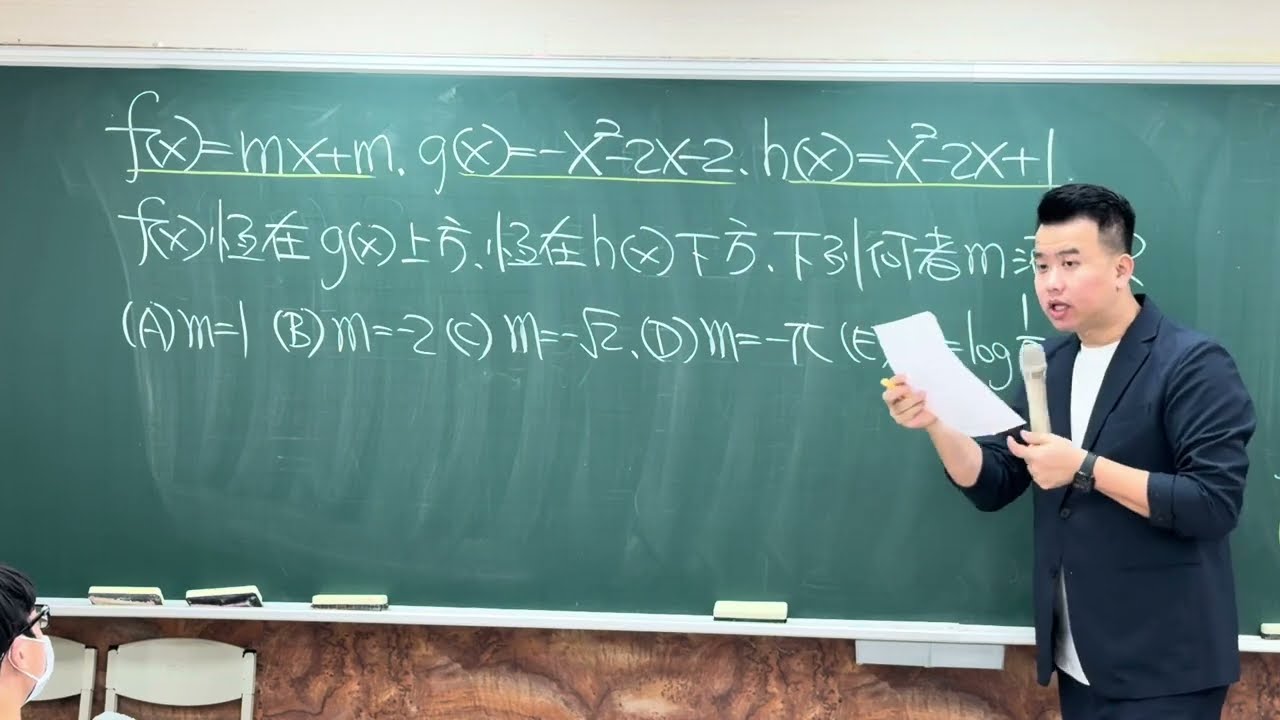 f(x)=mx+m. g(x)=-x²-2x-2. h(x)=x²-2x+1.
f(x)恆在g(x)上方、恆在h(x)下方、下列何者m
(A) m=1 (B) m=-2 (C) m=-√2. (D) m=-π (E =log